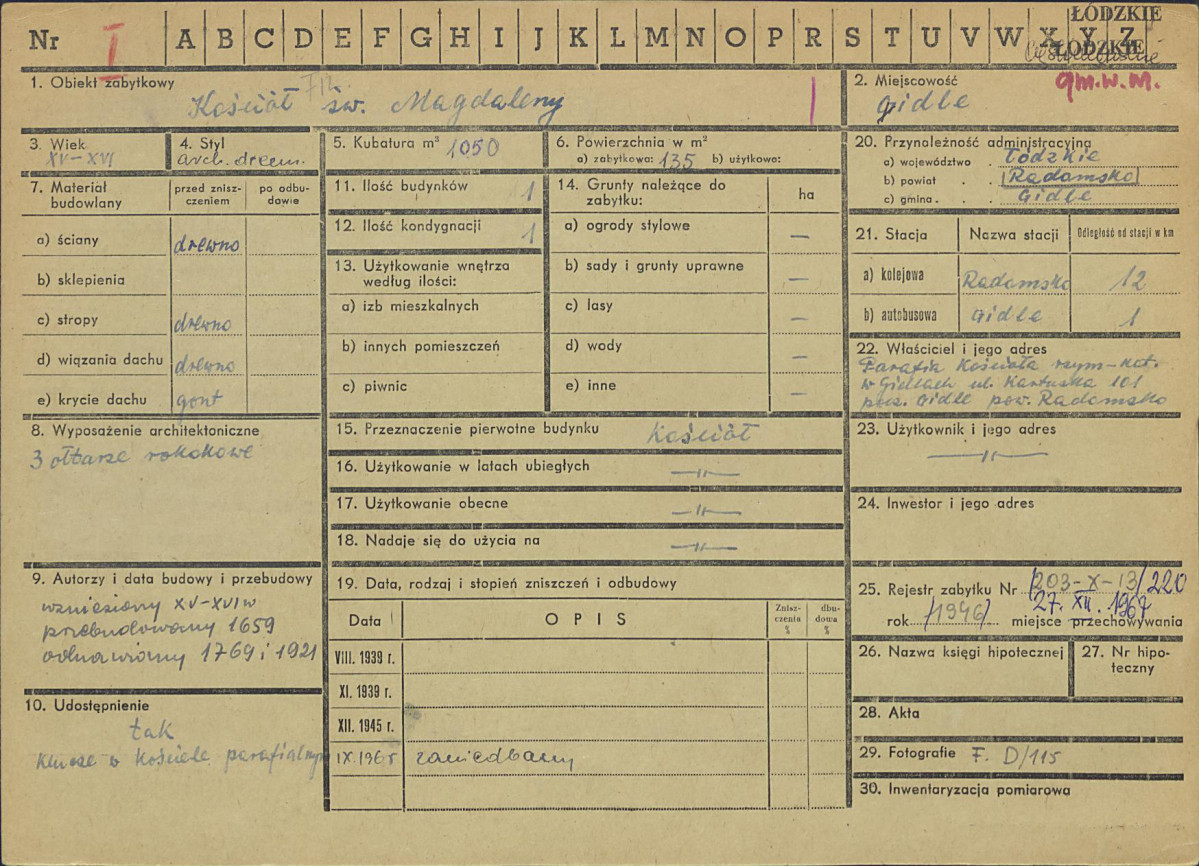 Nr I A B C D E F G H I J K L M N O P R S T U V W X Y Z
ŁÓDZKIE
ŁÓDZKIE
1. Obiekt zabytkowy
Kościół fil. św. Magdaleny
2. Miejscowość
Gidle
gm.w.m.
3. Wiek
XV-XVI
4. Styl
arch. drewn.
5. Kubatura m³ 1050
6. Powierzchnia w m²
a) zabytkowa: 135 b) użytkowa:
20. Przynależność administracyjna
a) województwo . Łódzkie
b) powiat . . Radomsko
c) gmina . . Gidle
7. Materiał budowlany
przed zniszczeniem
po odbudowie
a) ściany drewno
b) sklepienia
c) stropy drewno
d) wiązania dachu drewno
e) krycie dachu gont
11. Ilość budynków 1
12. Ilość kondygnacji 1
13. Użytkowanie wnętrza
według ilości:
a) izb mieszkalnych
b) innych pomieszczeń
c) piwnic
14. Grunty należące do
zabytku:
ha
a) ogrody stylowe —
b) sady i grunty uprawne —
c) lasy —
d) wody —
e) inne —
21. Stacja Nazwa stacji Odległość od stacji w km
a) kolejowa Radomsko 12
b) autobusowa Gidle 1
22. Właściciel i jego adres
Parafia Kościoła rzym-kat.
w Gidlach ul. Kartuska 101
pocz. Gidle pow. Radomsko
8. Wyposażenie architektoniczne
3 ołtarze rokokowe
15. Przeznaczenie pierwotne budynku Kościół
16. Użytkowanie w latach ubiegłych —"—
17. Użytkowanie obecne —"—
18. Nadaje się do użycia na —"—
23. Użytkownik i jego adres
—"—
24. Inwestor i jego adres
9. Autorzy i data budowy i przebudowy
wzniesiony XV-XVI w
przebudowany 1659
odnawiany 1769 i 1921
10. Udostępnienie
tak
klucze w Kościele parafialnym
19. Data, rodzaj i stopień zniszczeń i odbudowy
Data OPIS Zniszczenia % dbudowa %
VIII. 1939 r.
XI. 1939 r.
XII. 1945 r.
IX.1965 zaniedbany
25. Rejestr zabytku Nr /203-X-13/ 220
27. XII. 1967
rok /1946/ miejsce przechowywania
26. Nazwa księgi hipotecznej
27. Nr hipoteczny
28. Akta
29. Fotografie F. D/115
30. Inwentaryzacja pomiarowa